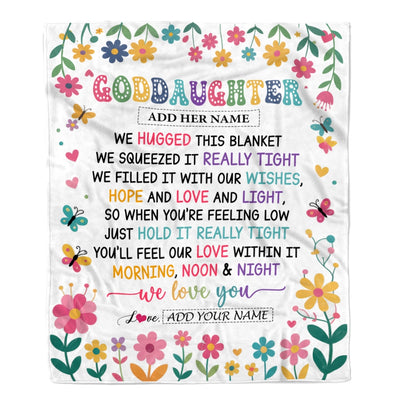 GODDAUGHTER
ADD HER NAME
WE HUGGED THIS BLANKET
WE SQUEEZED IT REALLY TIGHT
WE FILLED IT WITH OUR WISHES,
HOPE AND LOVE AND LIGHT,
SO WHEN YOU'RE FEELING LOW
JUST HOLD IT REALLY TIGHT
YOU'LL FEEL OUR LOVE WITHIN IT
MORNING, NOON & NIGHT
we love you
Love, ADD YOUR NAME